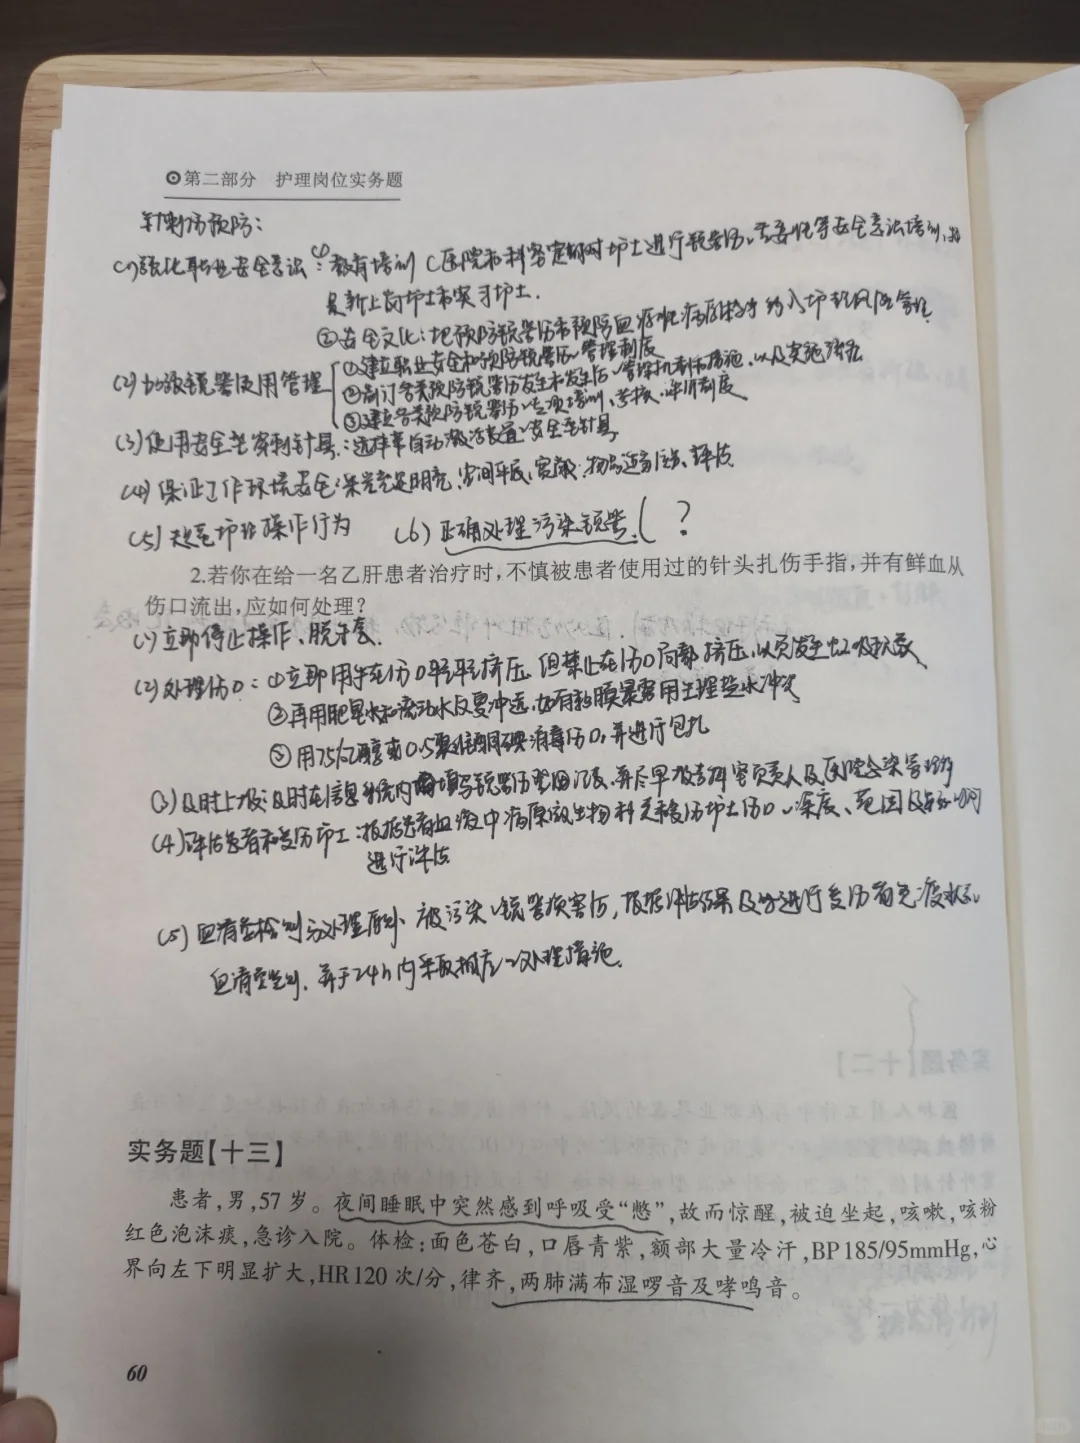 第二部分 护理岗位实务题
针刺伤预防：
(1)强化职业安全意识：①教育培训（医院和科室定期对护士进行锐器伤、安全意识培训，
是新上岗护士和实习护士.
②安全文化：把预防锐器伤和预防血源性病原体 纳入护理风险管理
(2)加强锐器使用管理
①建立职业安全和预防锐器伤、管理制度
②制订各类预防锐器伤发生和发生后、管理 措施，以及实施
③建立各类预防锐器伤、专项培训、考核、评价制度
(3)使用安全型穿刺针具：选择带自动激活装置、安全型针具
(4)保证工作环境安全：采光充足明亮、空间 宽敞；物品
(5)规范护理操作行为 (6)正确处理污染锐器（？
2.若你在给一名乙肝患者治疗时,不慎被患者使用过的针头扎伤手指,并有鲜血从
伤口流出,应如何处理?
(1)立即停止操作、脱手套.
(2)处理伤口：①立即用手在伤口 轻轻挤压，但禁止在伤口局部挤压，以免发生虹吸现象
②再用肥皂水和流动水反复冲洗，如有黏膜暴露用生理盐水冲洗
③用75%乙醇或0.5%碘伏 消毒伤口，并进行包扎
(3)及时上报：及时在信息系统内填写锐器伤登记表，并尽早报告科室负责人及医院感染管理科
(4)评估患者和受伤护士：根据患者血液中病原微生物 和受伤护士伤口、深度、范围及暴露时间
进行评估
(5)血清学检测与处理原则：被污染、锐器损害后，根据评估结果及时进行受伤者免疫状态、
血清学检测，并于24h内采取相应、处理措施.
实务题【十三】
患者,男,57岁。夜间睡眠中突然感到呼吸受“憋”,故而惊醒,被迫坐起,咳嗽,咳粉
红色泡沫痰,急诊入院。体检:面色苍白,口唇青紫,额部大量冷汗,BP185/95mmHg,心
界向左下明显扩大,HR120次/分,律齐,两肺满布湿啰音及哮鸣音。
60